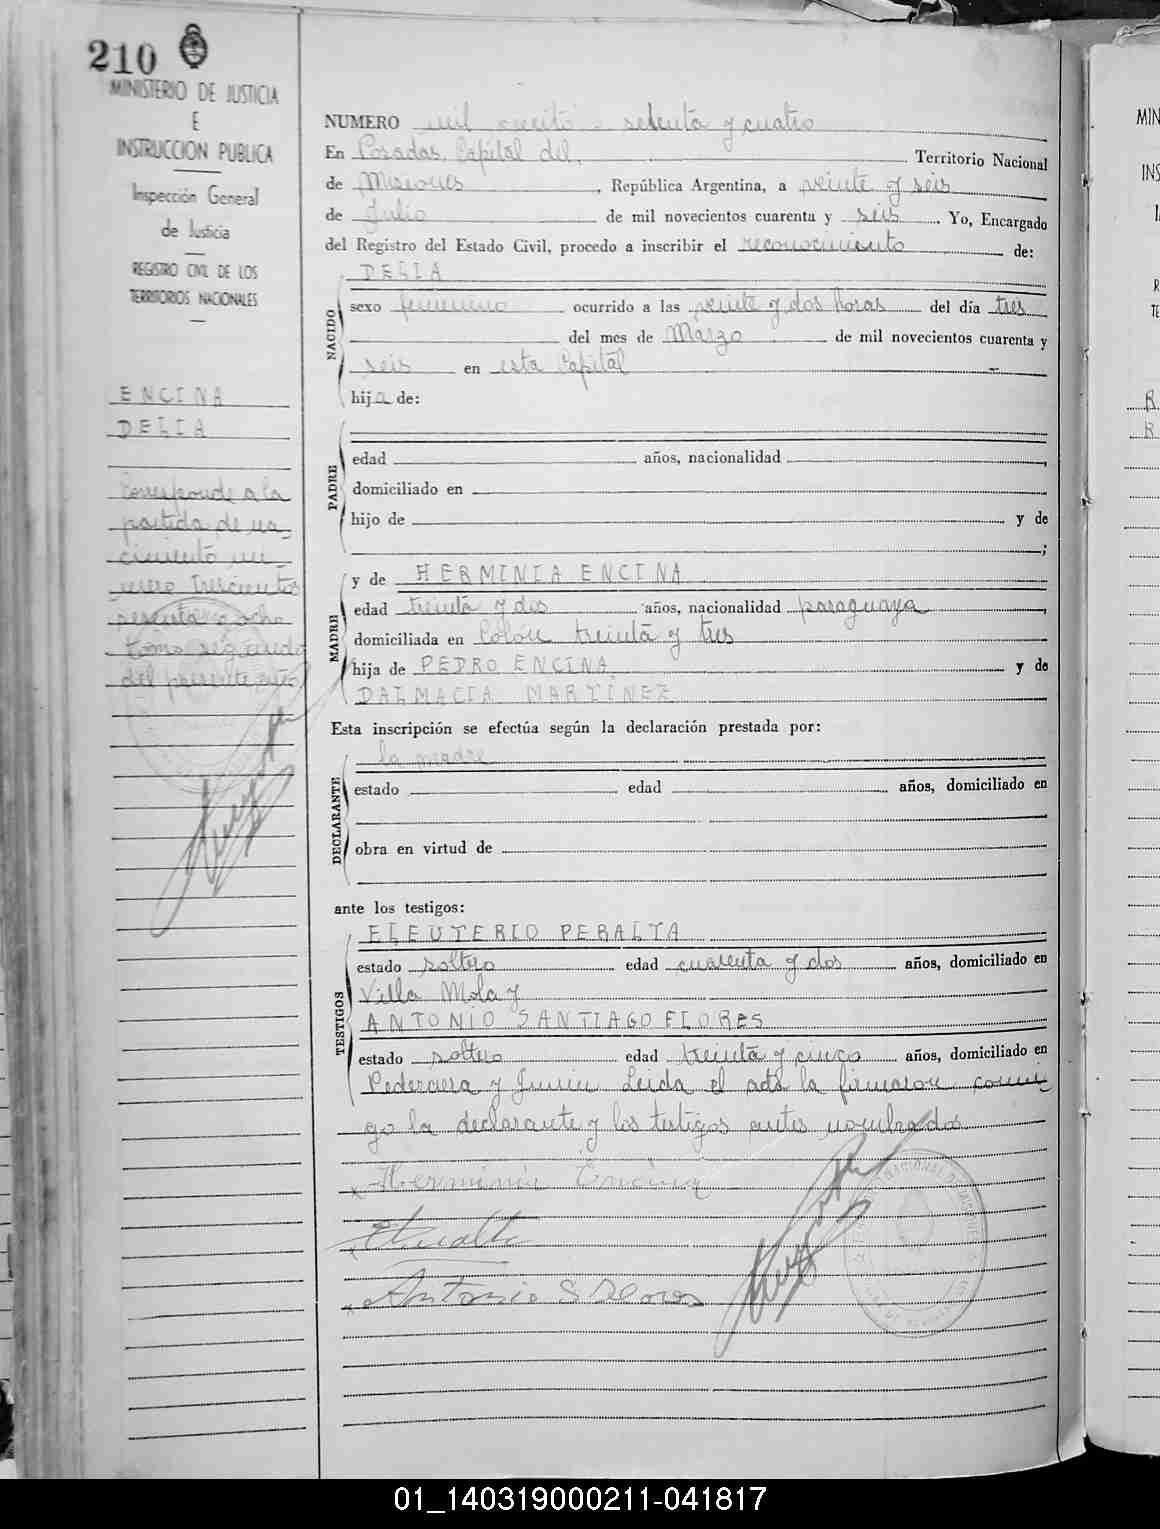 210
MINISTERIO DE JUSTICIA
E
INSTRUCCION PUBLICA
Inspección General
de Justicia
REGISTRO CIVIL DE LOS
TERRITORIOS NACIONALES
ENCINA
DELIA
Corresponde a la
partida de na-
cimiento nu-
mero trescientos
sesenta y ocho
tomo segundo
del presente año
NUMERO mil ciento setenta y cuatro
En Posadas, Capital del Territorio Nacional
de Misiones, República Argentina, a veinte y seis
de Julio de mil novecientos cuarenta y seis. Yo, Encargado
del Registro del Estado Civil, procedo a inscribir el reconocimiento de:
NACIDO
DELIA
sexo femenino ocurrido a las veinte y dos horas del día tres
del mes de Marzo de mil novecientos cuarenta y
seis en esta Capital
hija de:
PADRE
edad años, nacionalidad
domiciliado en
hijo de y de
;
MADRE
y de HERMINIA ENCINA
edad treinta y dos años, nacionalidad paraguaya,
domiciliada en Colón treinta y tres
hija de PEDRO ENCINA y de
DALMACIA MARTÍNEZ
Esta inscripción se efectúa según la declaración prestada por:
DECLARANTE
la madre
estado edad años, domiciliado en
obra en virtud de
ante los testigos:
TESTIGOS
ELEUTERIO PERALTA
estado soltero edad cuarenta y dos años, domiciliado en
Villa Mola y
ANTONIO SANTIAGO FLORES
estado soltero edad treinta y cinco años, domiciliado en
Pedernera y Junin Leida el acta la firmaron conmi
go la declarante y los testigos antes nombrados
x Herminia Encina
x Antonio S Flores
MIN
INS
R
TE
R
R
01_140319000211-041817